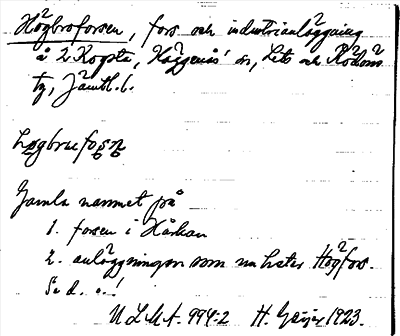 Högbroforsen, fors och industrianläggning
å 2 Kogsta, Häggenås' sn, Lits och Rödöns
tg, Jämtl. l.
Gamla namnet på
1. forsen i Hårkan
2. anläggningen som nu heter Högfors.
Se d. o.!
ULMA. 994:2 H. Geijer 1923.